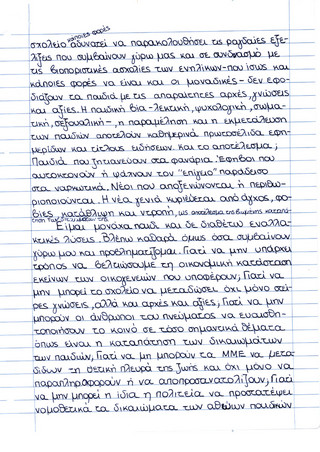 κάποιες φορές
σχολείο αδυνατεί να παρακολουθήσει τις ραγδαίες εξε-
λίξεις που συμβαίνουν γύρω μας και σε συνδυασμό με
τις βιοποριστικές ασχολίες των ενηλίκων-που ίσως και
κάποιες φορές να είναι και οι μοναδικές- δεν εφο-
διάζουν τα παιδιά με τις απαραίτητες αρχές, γνώσεις
και αξίες. Η παιδική βία -λεκτική, ψυχολογική, σωμα-
τική, σεξουαλική-, η παραμέληση και η εκμετάλλευση
των παιδιών αποτελούν καθημερινά πρωτοσέλιδα εφη-
μερίδων και τίτλους ειδήσεων. Και το αποτέλεσμα;
Παιδιά που ζητιανεύουν στα φανάρια. Έφηβοι που
αυτοκτονούν ή ψάχνουν τον "επίγειο" παράδεισο
στα ναρκωτικά. Νέοι που αποξενώνονται ή περιθω-
ριοποιούνται. Η νέα γενιά κυριεύεται από άγχος, φο-
βίες, κατάθλιψη και ντροπή, ως αποτέλεσμα της
Είμαι μονάχα παιδί και δε διαθέτω εναλλα-
κτικές λύσεις. Βλέπω καθαρά όμως όσα συμβαίνουν
γύρω μου και προβληματίζομαι. Γιατί να μην υπάρχει
τρόπος να βελτιώσουμε τη οικονομική κατάσταση
εκείνων των οικογενειών που υποφέρουν; Γιατί να
μην μπορεί το σχολείο να μεταδώσει όχι μόνο στεί-
ρες γνώσεις, αλλά και αρχές και αξίες; Γιατί να μην
μπορούν οι άνθρωποι του πνεύματος να ευαισθη-
τοποιήσουν το κοινό σε τόσο σημαντικά θέματα
όπως είναι η καταπάτηση των δικαιωμάτων
των παιδιών; Γιατί να μη μπορούν τα ΜΜΕ να μετα-
δίδουν τη θετική πλευρά της ζωής και όχι μόνο να
παραπληροφορούν ή να αποπροσανατολίζουν; Γιατί
να μην μπορεί η ίδια η πολιτεία να προστατέψει
νομοθετικά τα δικαιώματα των αθώων παιδικών